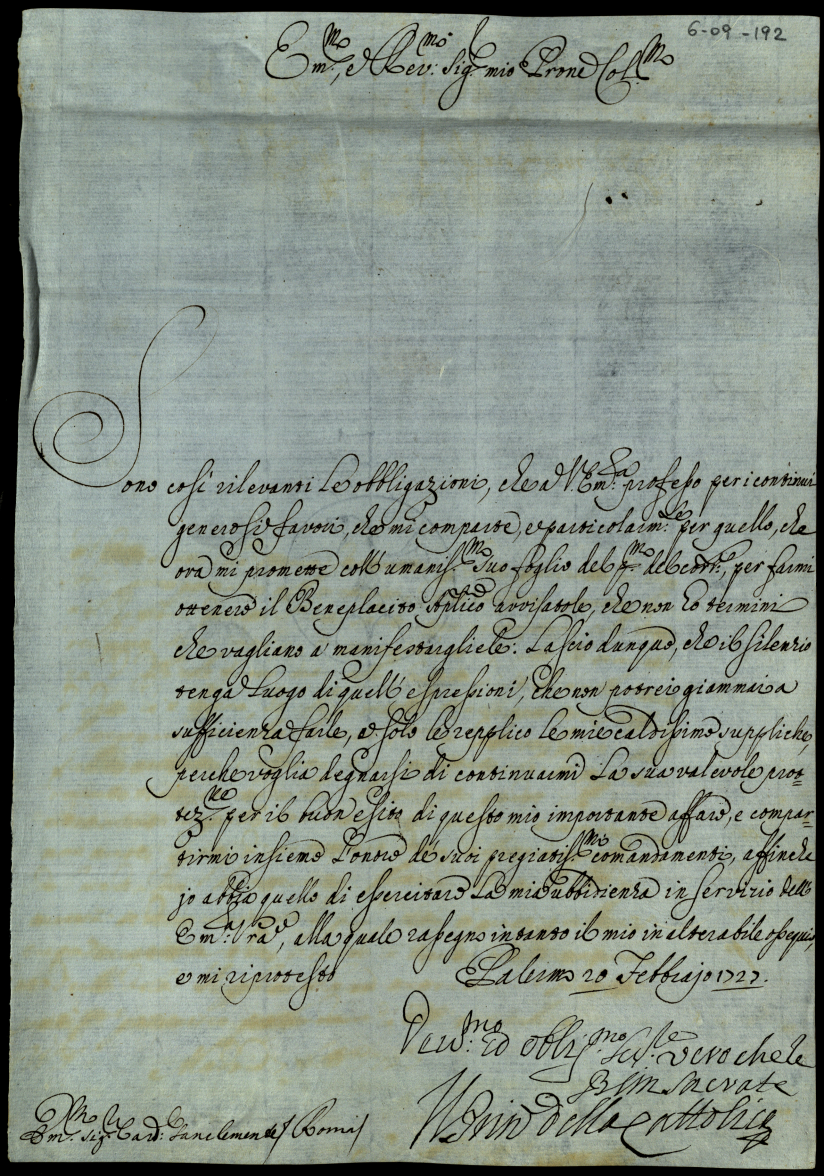 6-09-192
Em.mo, e Rev.mo Sig.r mio Prone Col.mo
Sono così rilevanti le obbligazioni, che a V. Em.za professo per i continui
generosi favori, che mi comparte, e particolarm.te per quello, che
ora mi promette coll'umaniss.mo suo foglio del p.mo del corr.te, per farmi
ottenere il Beneplacito Aplico avvisatole, che non ho termini
che vagliano a manifestargliele. Lascio dunque, che il silenzio
tenga luogo di quell'espressioni, che non potrei giammai a
sufficienza farle, e solo le repplico le mie caldissime suppliche,
perche voglia degnarsi di continuarmi la sua valevole prot=
tez.ne per il buon esito di questo mio importante affare, e compar=
tirmi insieme l'onore de suoi pregiatiss.mi comandamenti, affinche
jo abbia quello di esercitare la mia ubbidienza in servizio dell'
Em.za V'ra, alla quale rassegno intanto il mio inalterabile ossequio,
e mi riprotesto Palermo 20 Febbrajo 1727.
Dev.mo ed obblig.mo ser.re vero che le
B. le m. sacrate
Il Prin.e della Cattolica
Em.mo Sig.r Card. Sanclemente / Roma /